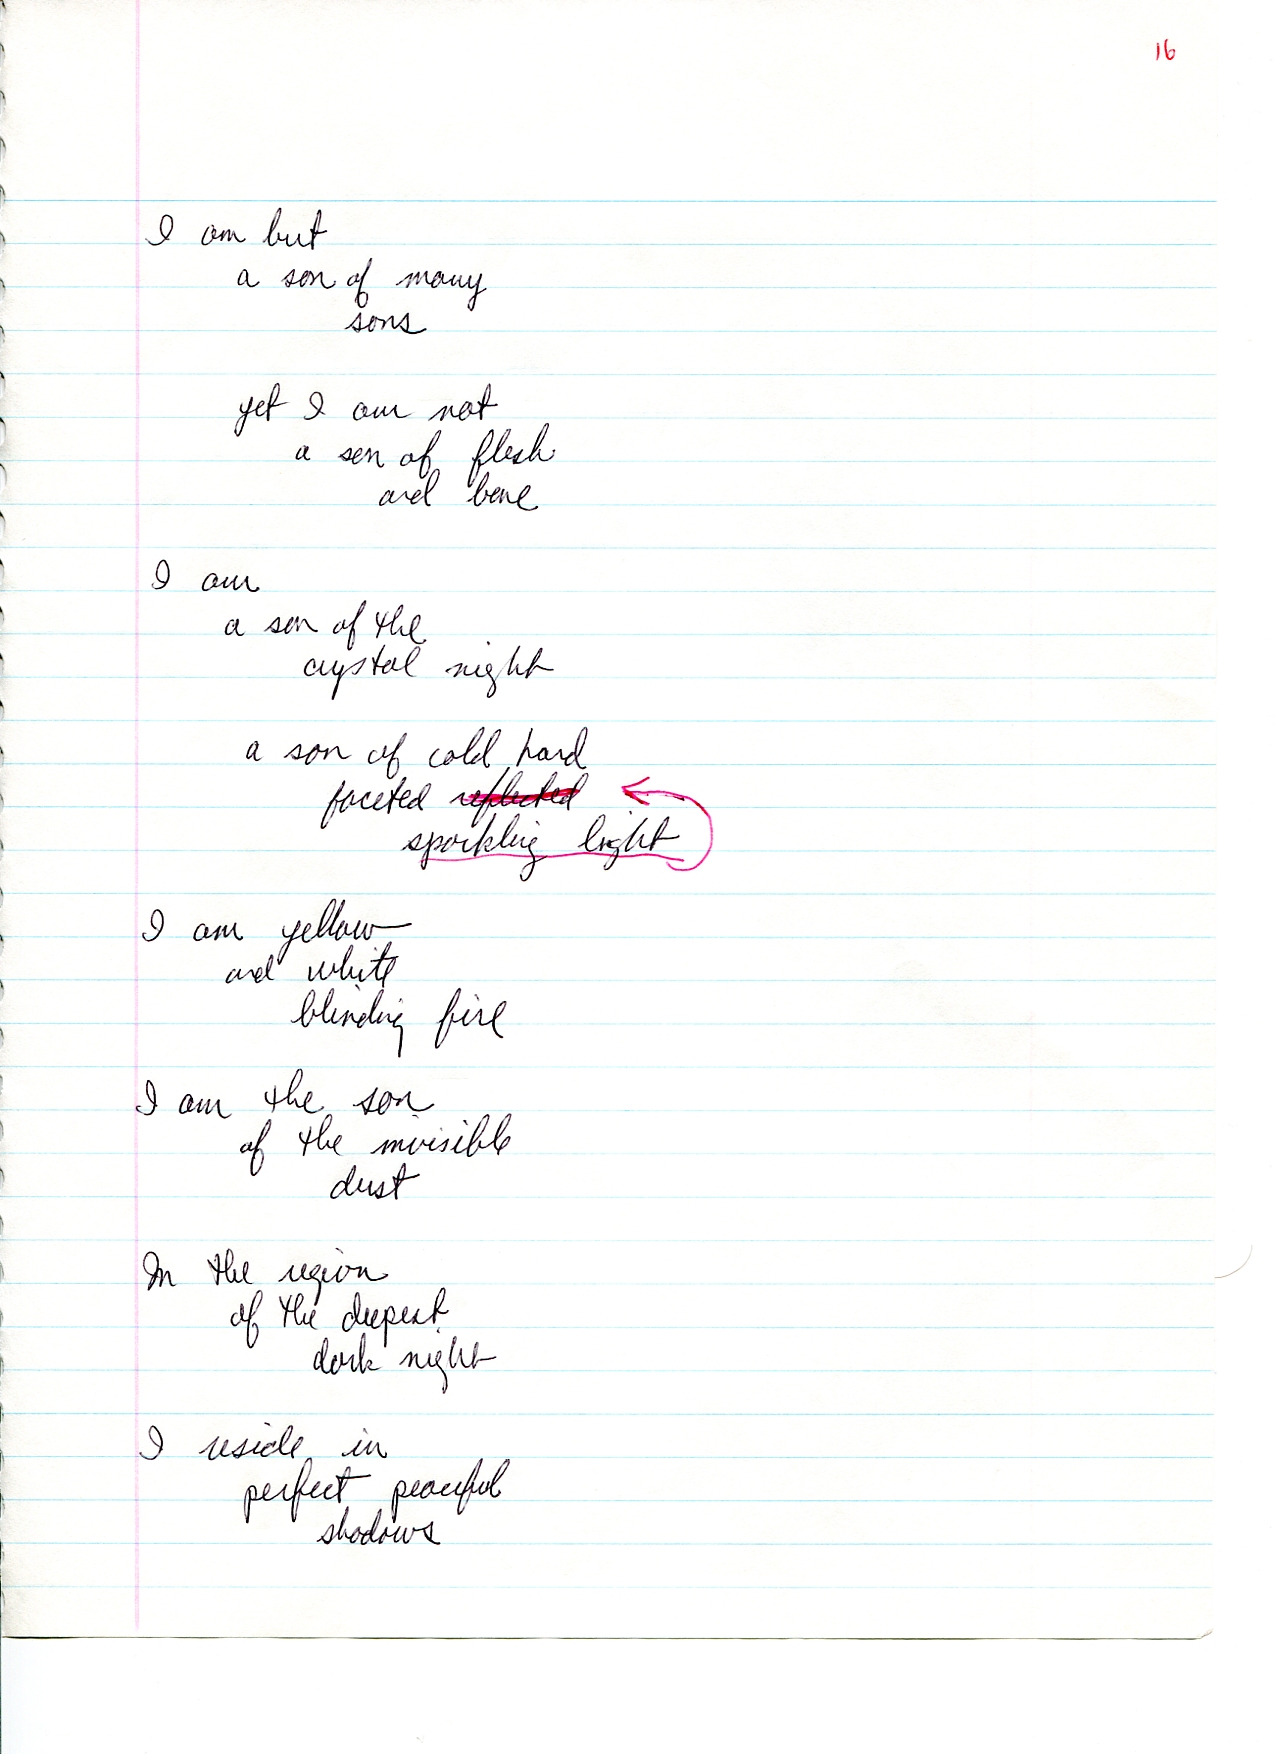 16
I am but
a son of many
sons
yet I am not
a son of flesh
and bone
I am
a son of the
crystal night
a son of cold hard
faceted reflected
sparkling light
I am yellow
and white
blinding fire
I am the son
of the invisible
dust
In the region
of the deepest
dark night
I reside in
perfect peaceful
shadows